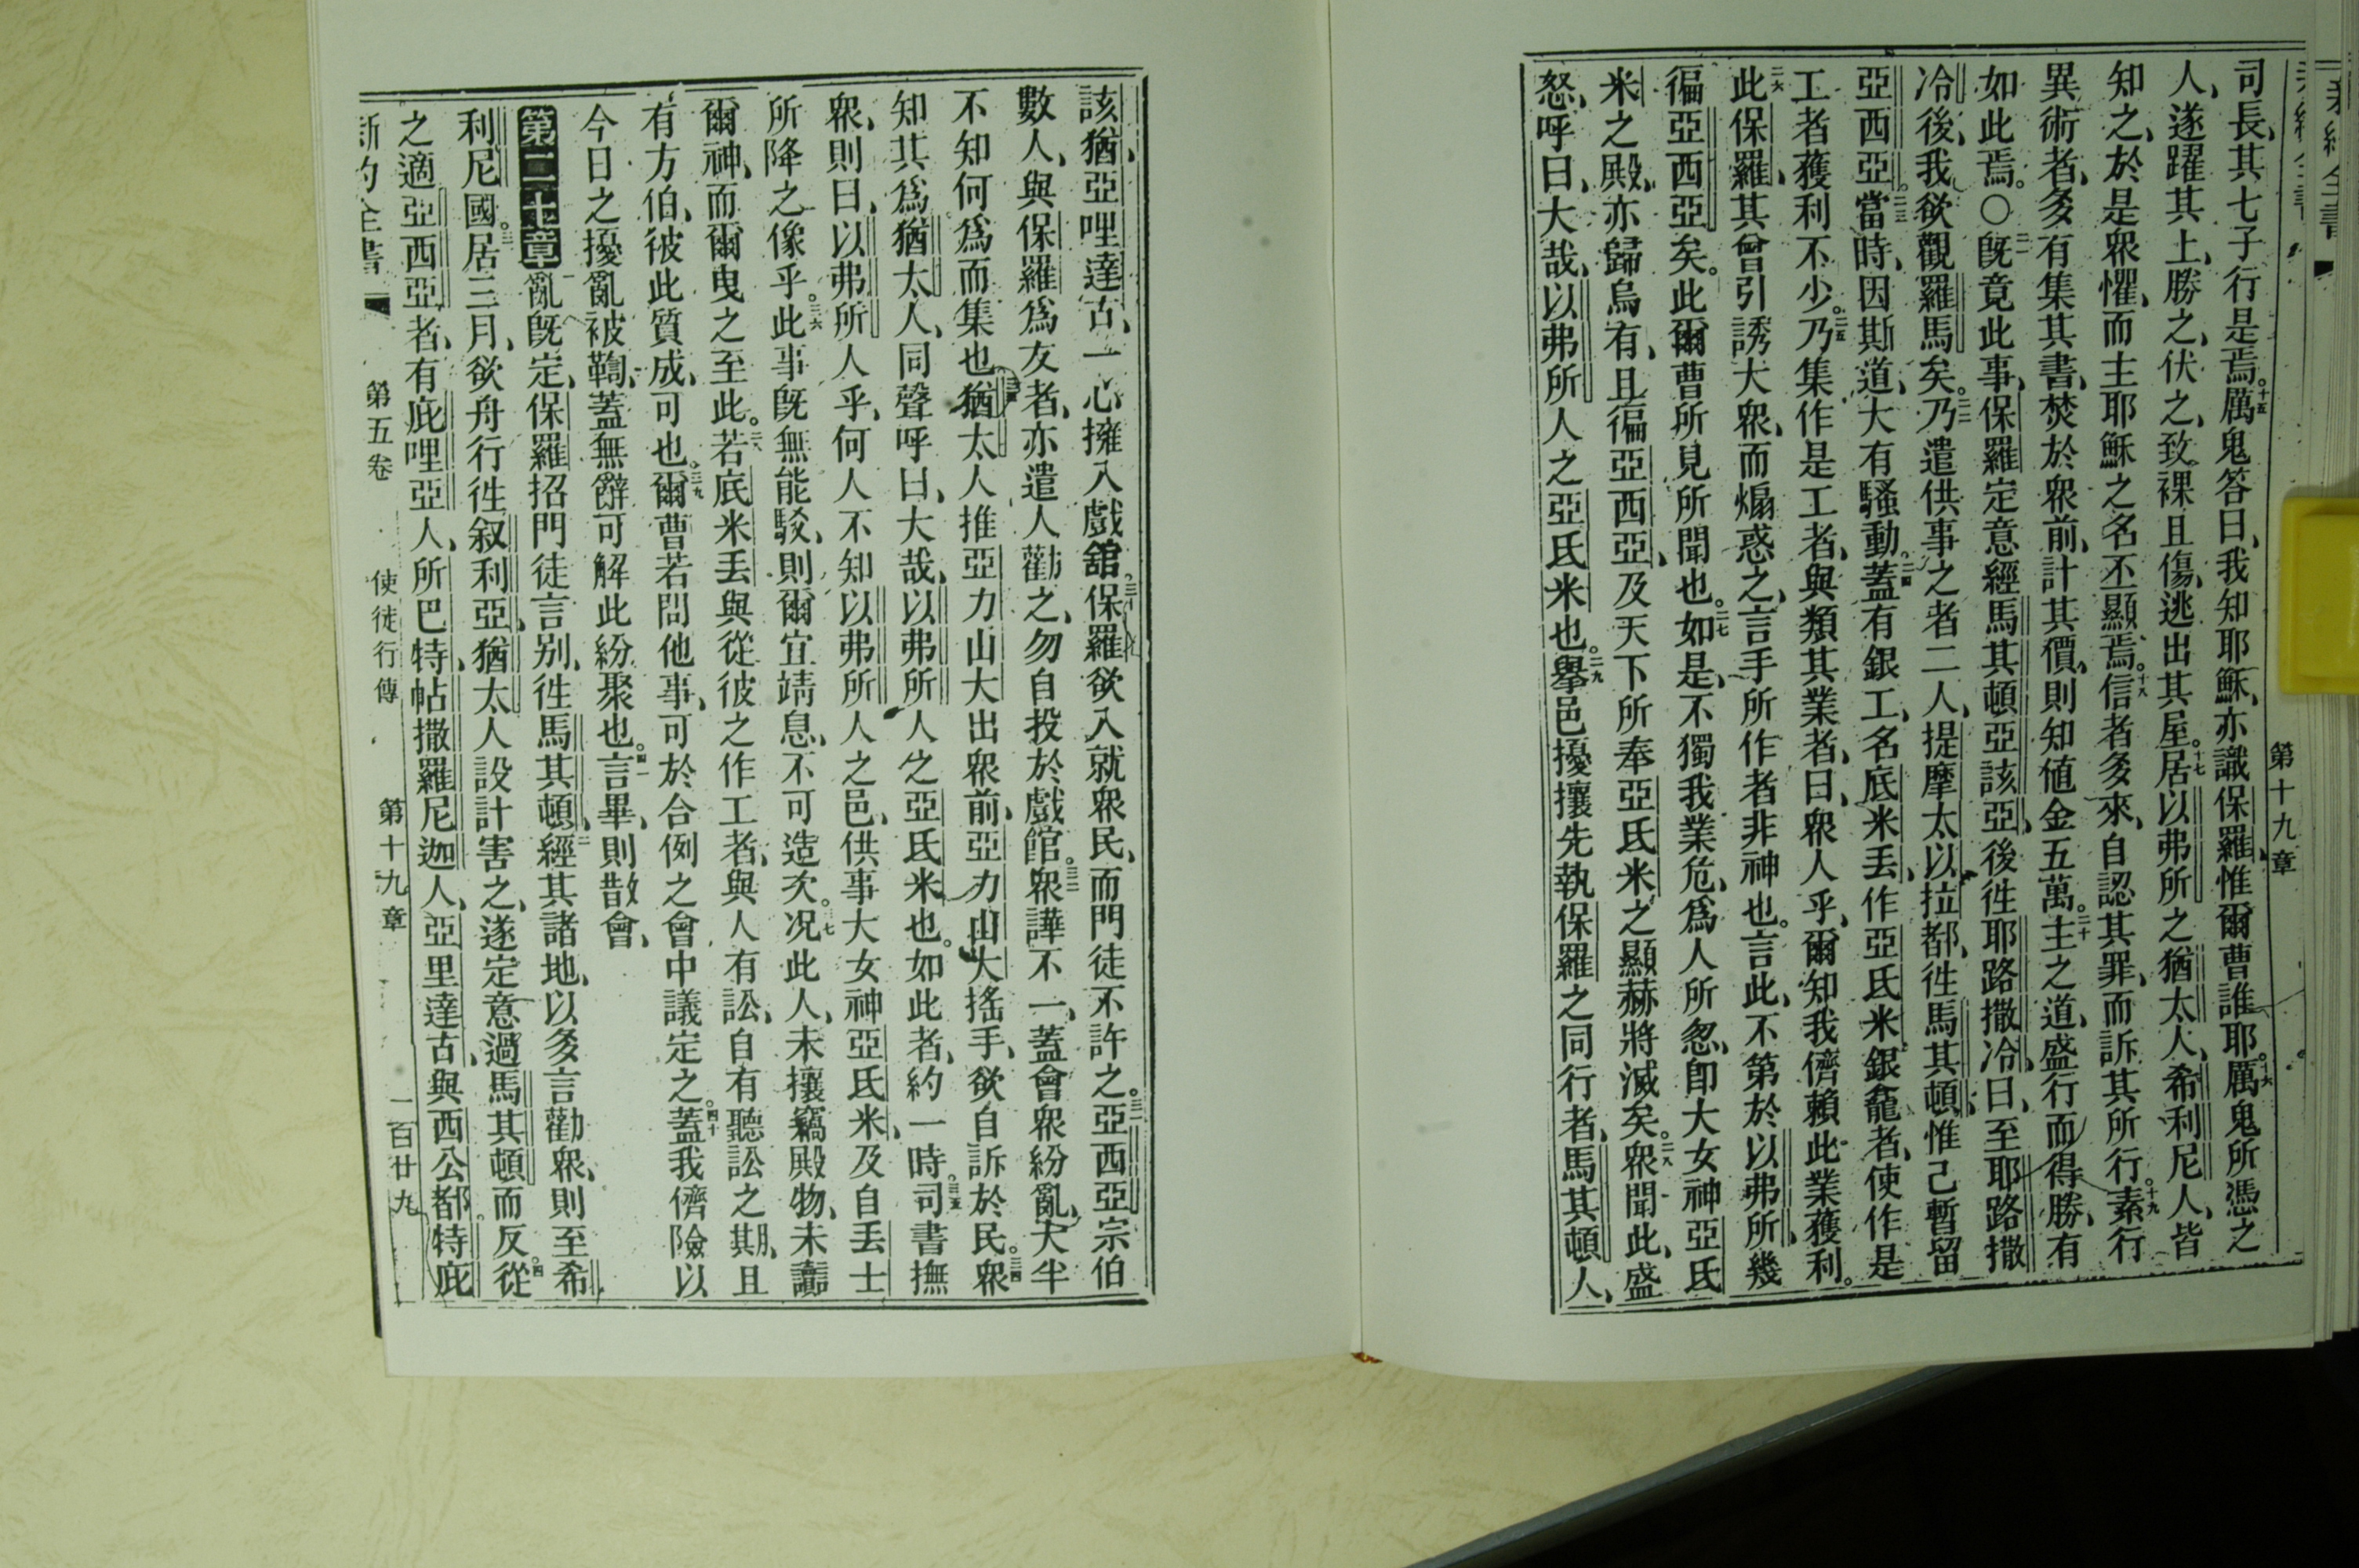 第十九章
司長、其七子行是焉。十五厲鬼答曰、我知耶穌、亦識保羅、惟爾曹誰耶。十六厲鬼所憑之
人、遂躍其上、勝之、伏之、致裸且傷、逃出其屋。十七居以弗所之猶太人、希利尼人、皆
知之、於是衆懼、而主耶穌之名丕顯焉。十八信者多來、自認其罪、而訴其所行。十九素行
異術者、多有集其書、焚於衆前、計其價、則知値金五萬。二十主之道、盛行而得勝、有
如此焉。〇二一旣竟此事、保羅定意經馬其頓亞該亞、後徃耶路撒冷、曰、至耶路撒
冷後、我欲觀羅馬矣。二二乃遣供事之者二人、提摩太以拉都、徃馬其頓、惟己暫留
亞西亞。二三當時、因斯道、大有騷動。二四蓋有銀工、名底米丢、作亞氐米銀龕者、使作是
工者獲利不少。二五乃集作是工者、與類其業者、曰、衆人乎、爾知我儕賴此業獲利。
二六此保羅、其曾引誘大衆、而煽惑之、言手所作者非神也。言此、不第於以弗所、幾
徧亞西亞矣。此爾曹所見所聞也。二七如是、不獨我業危、爲人所忽、卽大女神亞氐
米之殿、亦歸烏有、且徧亞西亞、及天下所奉亞氐米之顯赫將滅矣。二八衆聞此、盛
怒、呼曰、大哉、以弗所人之亞氐米也。二九舉邑擾攘、先執保羅之同行者、馬其頓人、
該猶、亞哩達古、一心擁入戲舘。三十保羅欲入就衆民、而門徒不許之。三一亞西亞宗伯
數人、與保羅爲友者、亦遣人勸之、勿自投於戲館。三二衆譁不一、蓋會衆紛亂、大半
不知何爲而集也。三三猶太人推亞力山大出衆前、亞力山大搖手、欲自訴於民。三四衆
知其爲猶太人、同聲呼曰、大哉、以弗所人之亞氐米也。如此者、約一時。三五司書撫
衆、則曰、以弗所人乎、何人不知以弗所人之邑、供事大女神亞氐米、及自丢士
所降之像乎。三六此事旣無能駁、則爾宜靖息、不可造次。三七况此人、未攘竊殿物、未讟
爾神、而爾曳之至此。三八若底米丢與從彼之作工者、與人有訟、自有聽訟之期、且
有方伯、彼此質成、可也。三九爾曹若問他事、可於合例之會中議定之。四十蓋我儕險以
今日之擾亂被鞫、蓋無辭可解此紛聚也。四一言畢、則散會、
第二十章 一亂旣定、保羅招門徒言別、徃馬其頓、二經其諸地、以多言勸衆、則至希
利尼國。三居三月、欲舟行徃叙利亞、猶太人設計害之、遂定意過馬其頓而反。四從
之適亞西亞者、有庇哩亞人、所巴特、帖撒羅尼迦人、亞里達古、與西公都、特庇
新約全書 第五卷 使徒行傳 第十九章 一百廿九